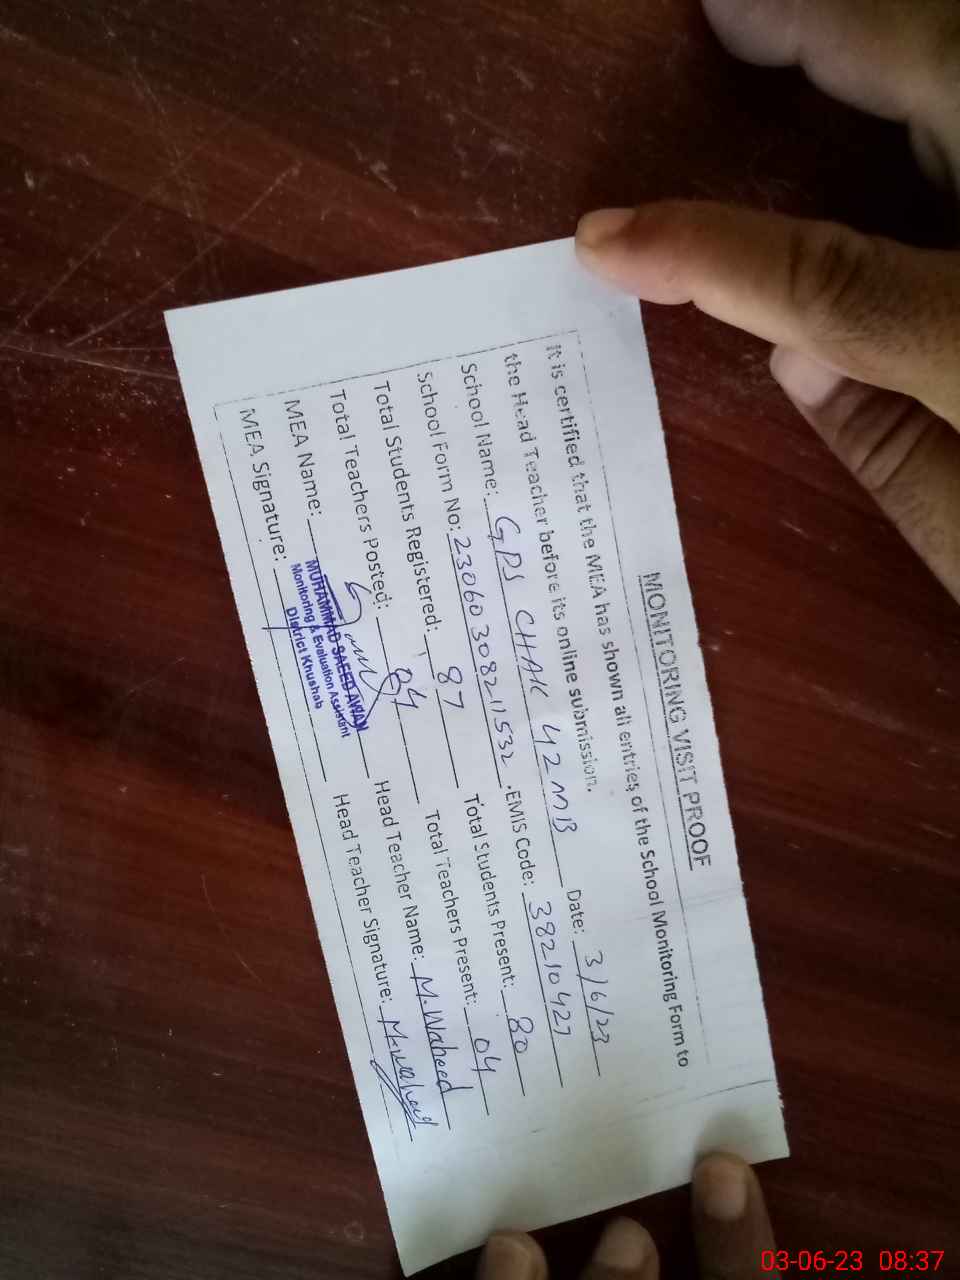 MONITORING VISIT PROOF
It is certified that the MEA has shown all entries of the School Monitoring Form to
the Head Teacher before its online submission.
School Name: GPS CHAK 42 MB Date: 3/6/23
School Form No: 23060308211532 .EMIS Code: 38210427
Total Students Registered: 87 Total Students Present: 80
Total Teachers Posted: 04 Total Teachers Present: 04
MEA Name: MUHAMMAD SAEED AWAN Head Teacher Name: M.Waheed
Monitoring & Evaluation Assistant
District Khushab
MEA Signature: Head Teacher Signature: M.waheed
03-06-23 08:37